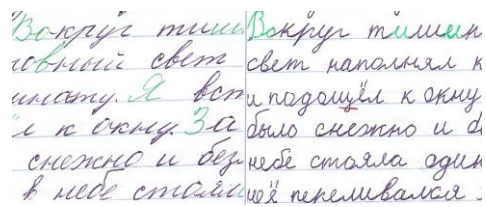 Вокруг тиши
ловный свет
мнату. Я вст
л к окну. За
снежно и без
в небе стоял
Вокруг тишин
свет наполнял к
и подошёл к окну
было снежно и б
небе стояла один
неё переливался